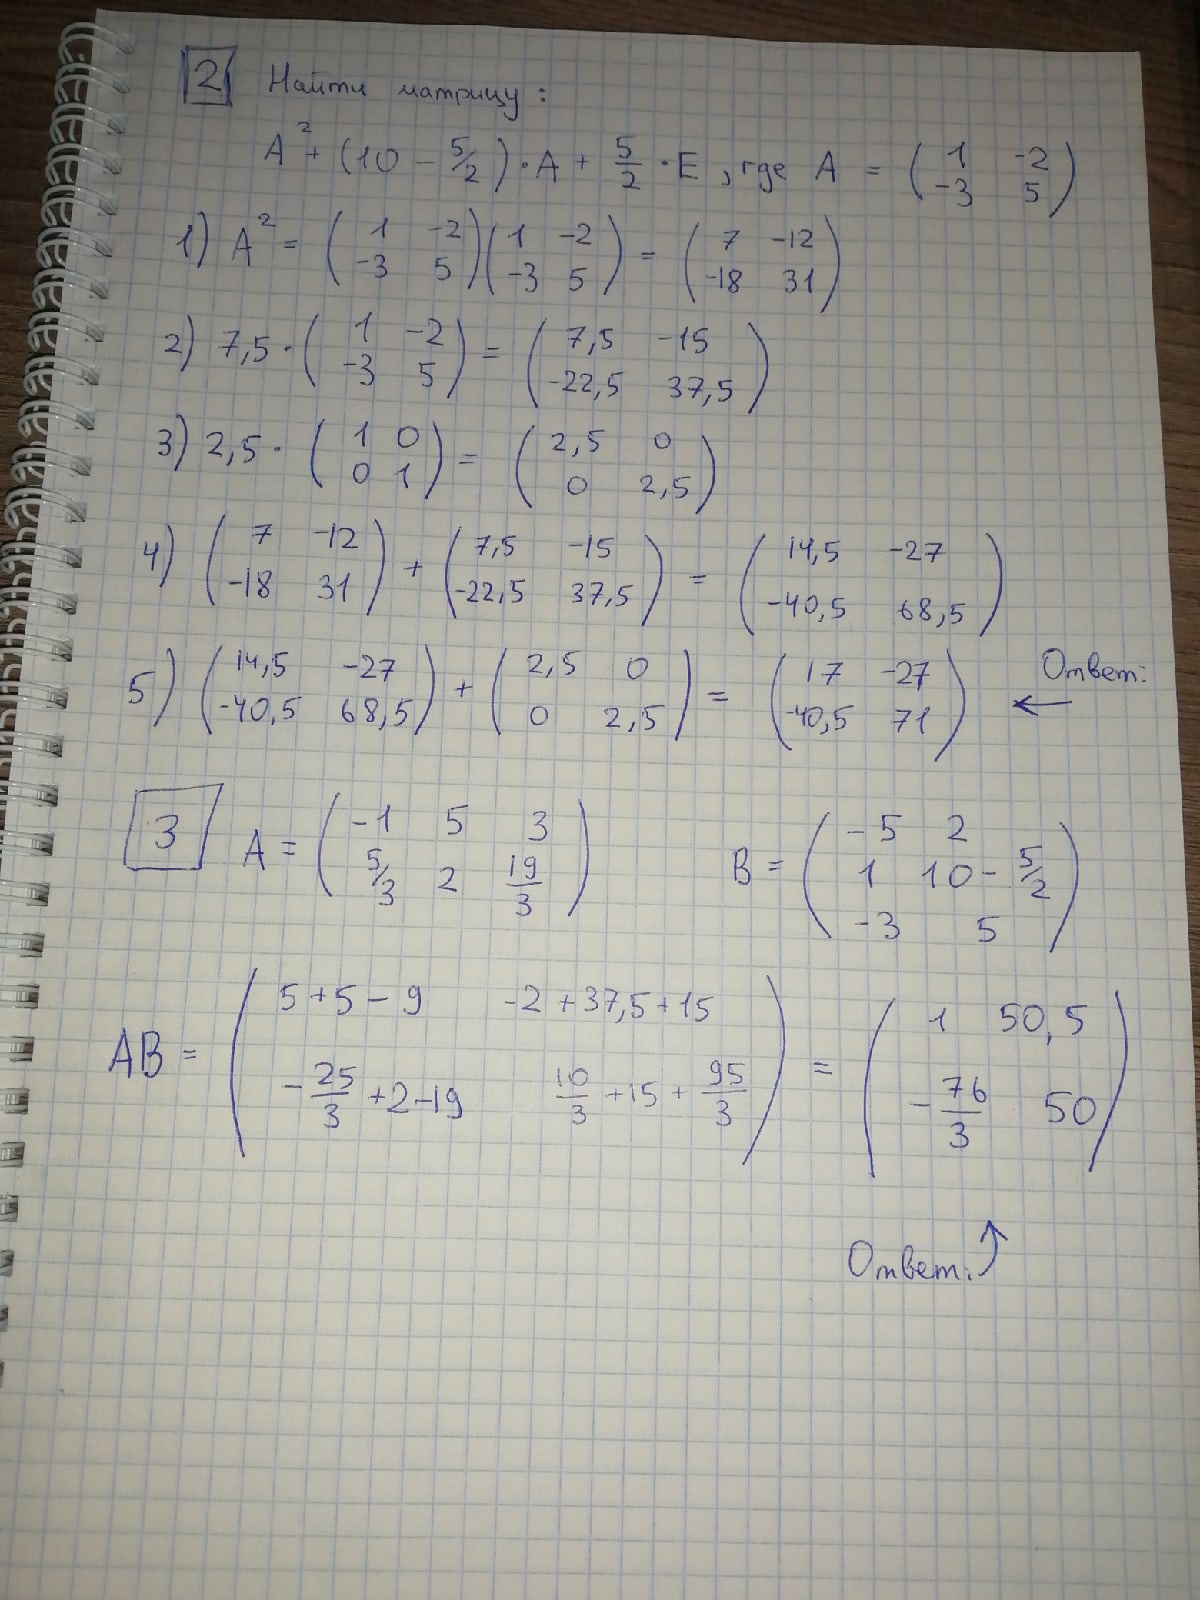 2 Найти матрицу:
A² + (10 - 5/2)·A + 5/2·E, где A = (1 -2
-3 5)
1) A² = (1 -2
-3 5)(1 -2
-3 5) = (7 -12
-18 31)
2) 7,5·(1 -2
-3 5) = (7,5 -15
-22,5 37,5)
3) 2,5·(1 0
0 1) = (2,5 0
0 2,5)
4) (7 -12
-18 31) + (7,5 -15
-22,5 37,5) = (14,5 -27
-40,5 68,5)
5) (14,5 -27
-40,5 68,5) + (2,5 0
0 2,5) = (17 -27
-40,5 71) ← Ответ:
3 A = (-1 5 3
5/3 2 19/3)
B = (-5 2
1 10 - 5/2
-3 5)
AB = (5+5-9 -2+37,5+15
-25/3+2-19 10/3+15+95/3) = (1 50,5
-76/3 50)
Ответ: ↑